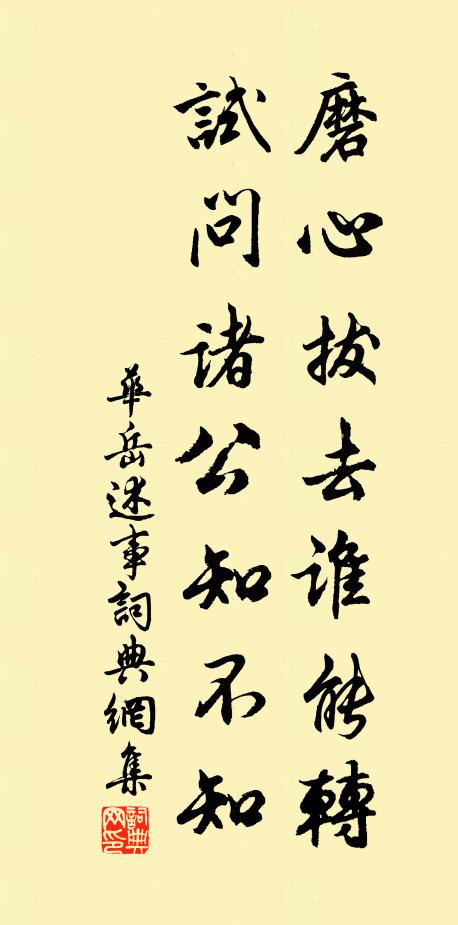 磨心拔去誰能轉
試問諸公知不知
華岳述事詞典網集
詞典網印